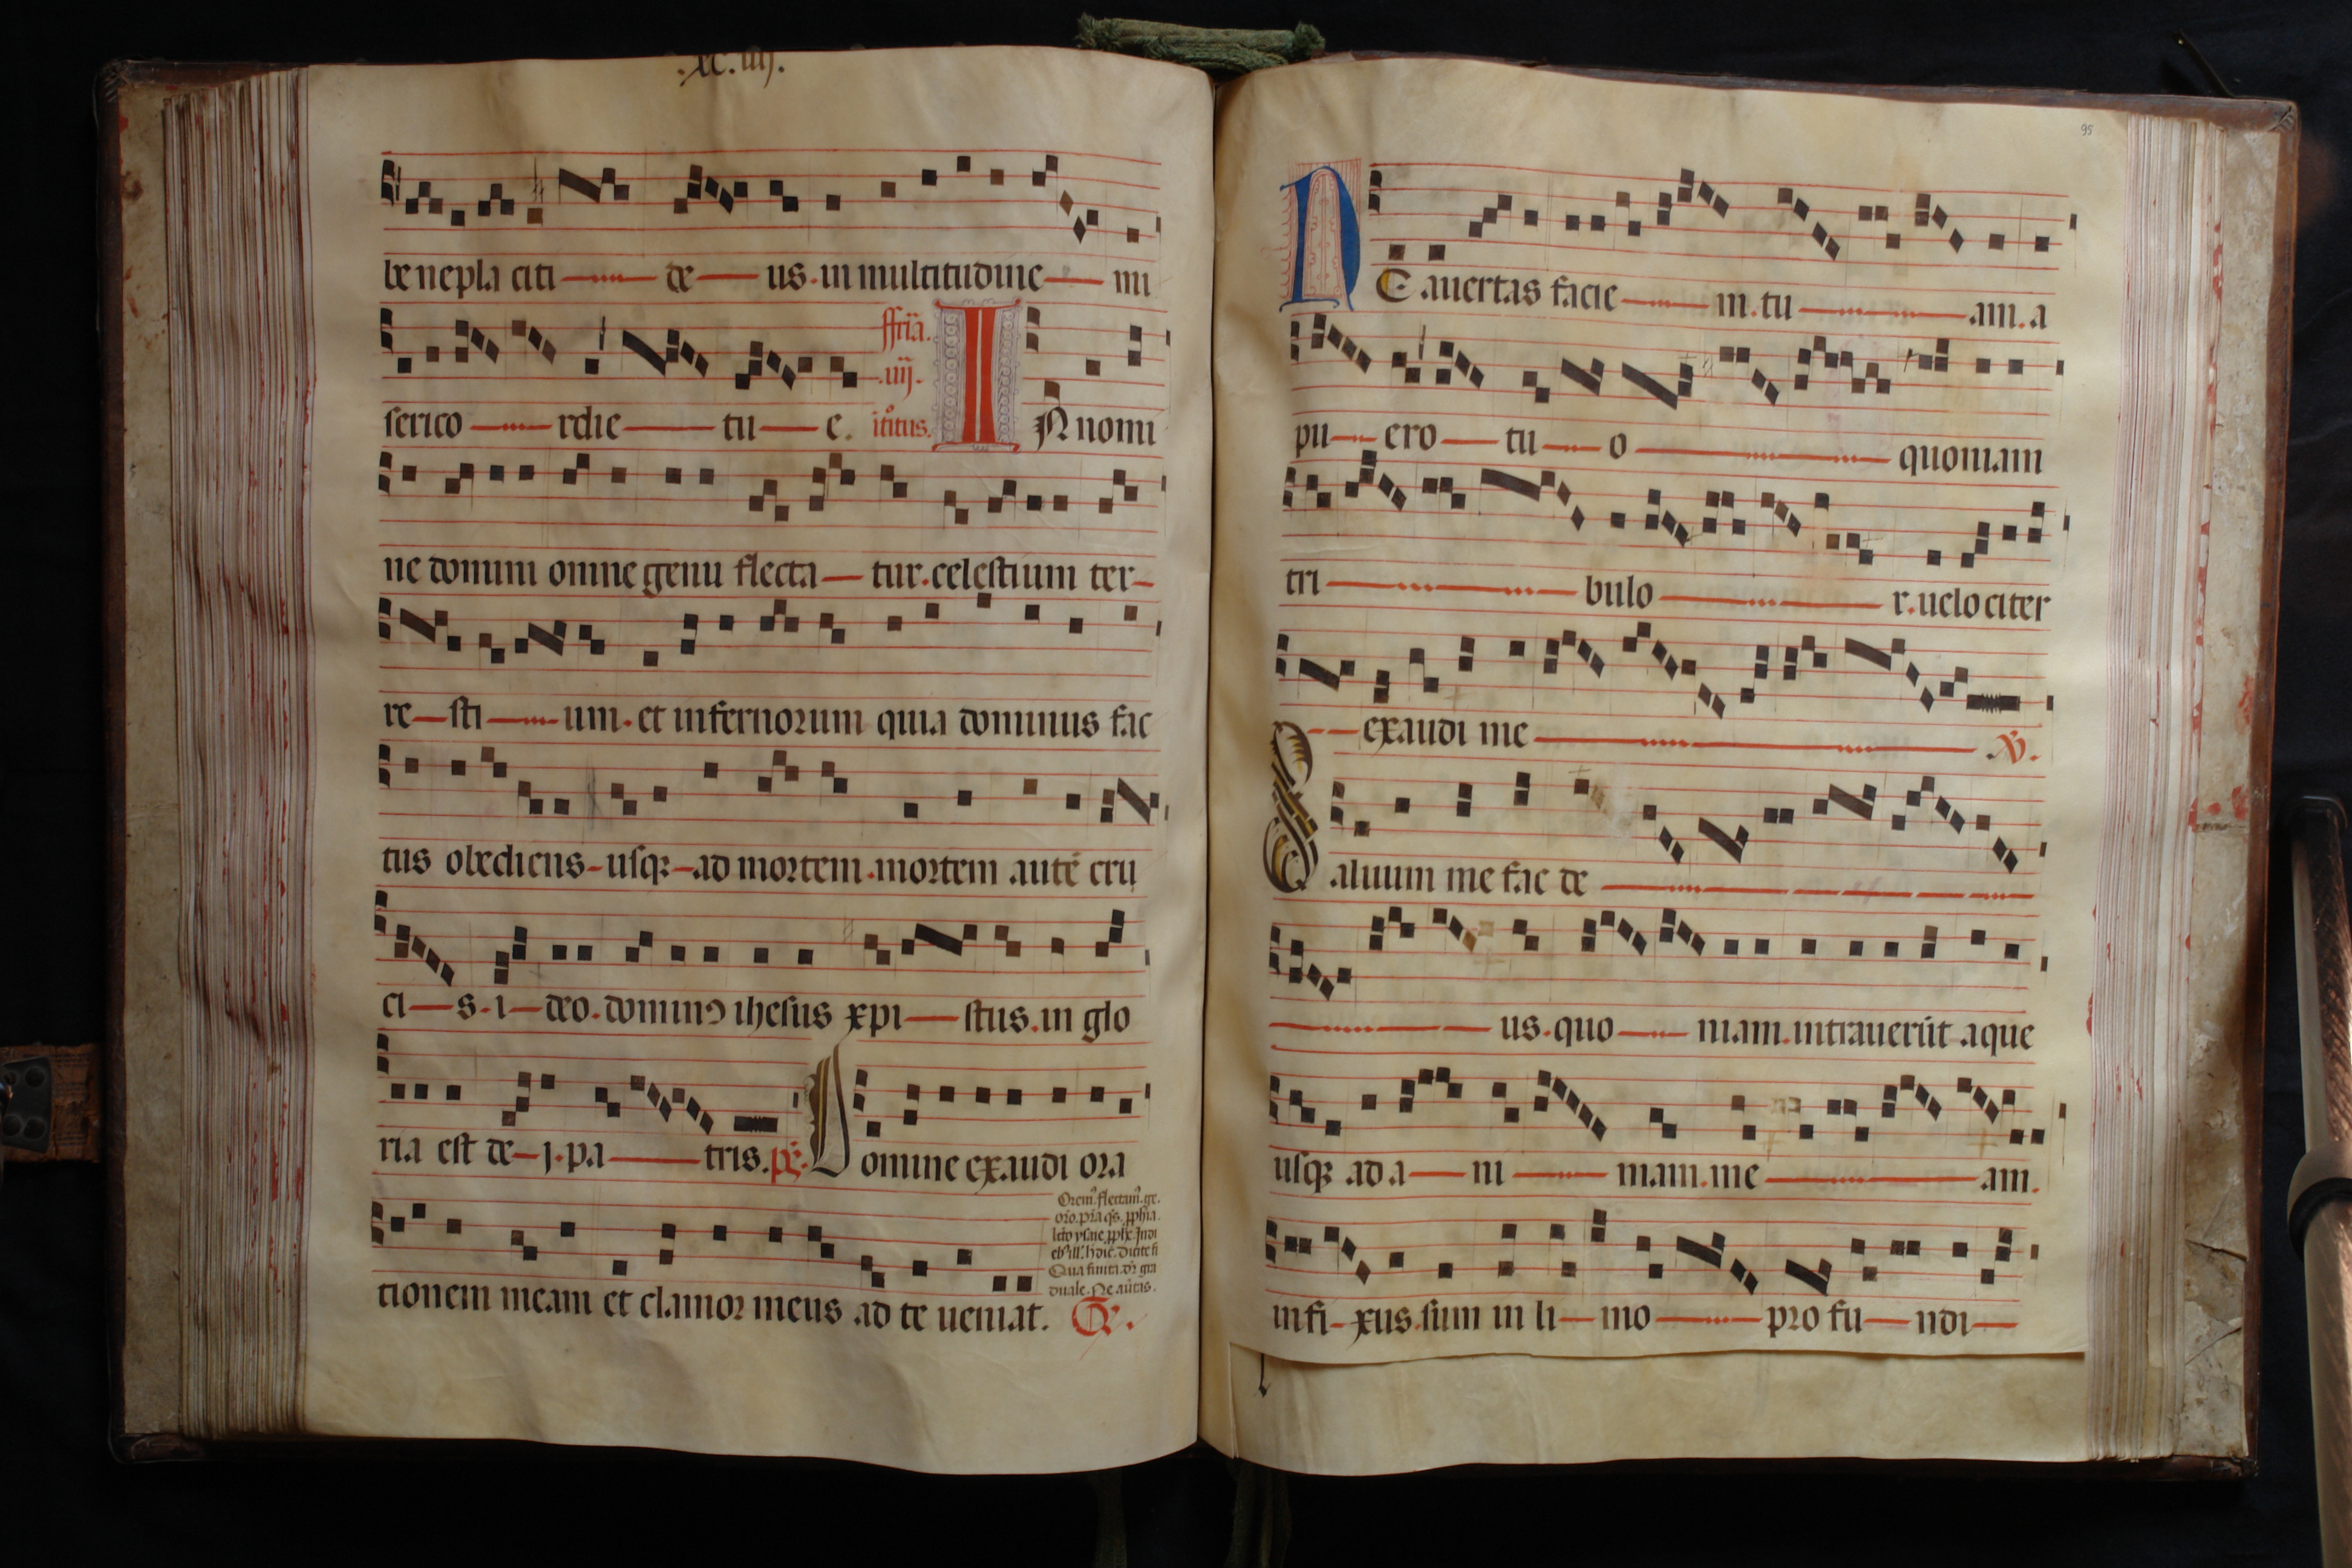 .xc.iiij.
be nepla citi de us. in multitudine mi
serico rdie tu e.
ffria.
.iiij.
itroitus.
IN nomi
ne domini omne genu flecta tur. celestium ter
re sti um. et infernorum quia dominus fac
tus obediens usqz ad mortem. mortem autē cru
ci s. i deo. dominꝰ ihesus xpi stus. in glo
ria est de i. pa tris. ps.
Domine exaudi ora
tionem meam et clamor meus ad te ueniat. Gr.
duale. Ne aūtas.
95
NE auertas facie m. tu am. a
pu ero tu o quoniam
tri bulo r. uelo citer
exaudi me V.
Saluum me fac de
us. quo niam. intrauerūt aque
usqz ad a ni mam. me am.
infi xus sum in li mo pro fu ndi